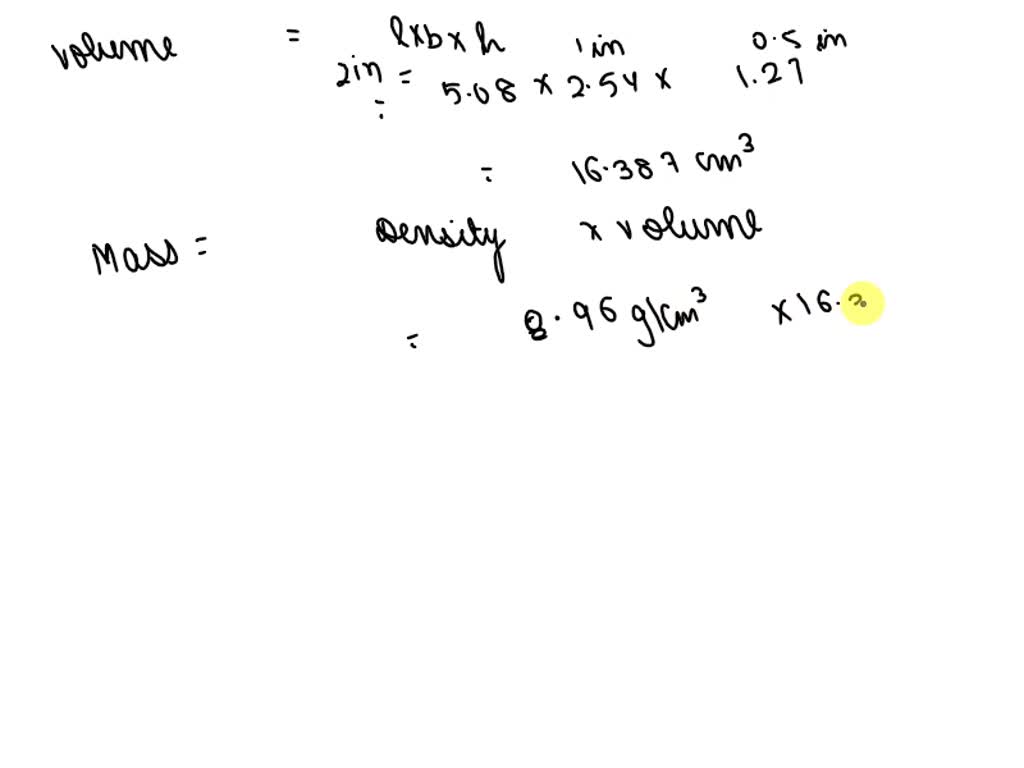 volume = l x b x h 1 in 0.5 in
2in = 5.08 x 2.54 x 1.27
=
= 16.387 cm³
Mass = Density x volume
= 8.96 g/cm³ x 16.3